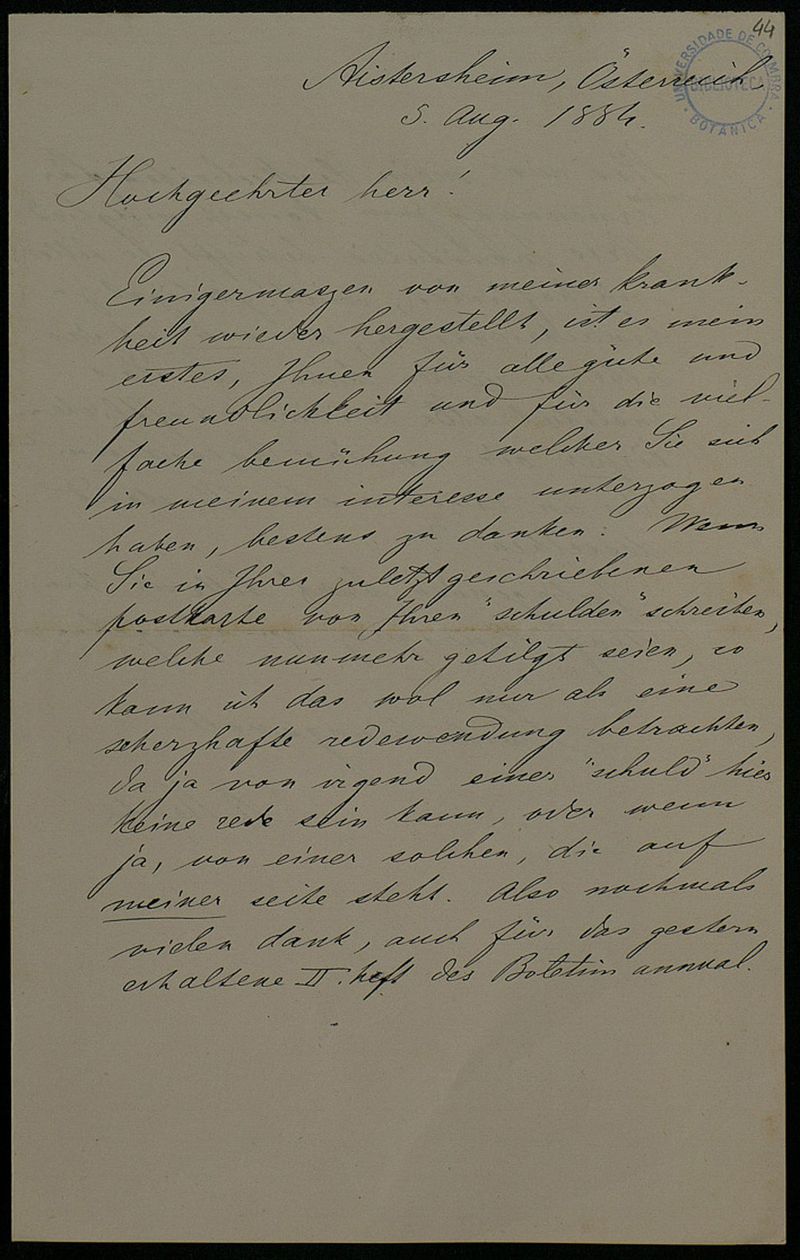 44
UNIVERSIDADE DE COIMBRA
BIBLIOTECA
BOTANICA
Aistersheim, Österreich
5. Aug. 1884.
Hochgeehrter herr!
Einigermaszen von meiner krank-
heit wieder hergestellt, ist es mein
erstes, Ihnen für alle güte und
freundlichkeit und für die viel-
fache bemühung welcher Sie sich
in meinem interesse unterzogen
haben, bestens zu danken. Wenn
Sie in Ihrer zuletzt geschriebenen
postkarte von Ihren "schulden" schreiben,
welche nunmehr getilgt seien, so
kann ich das wol nur als eine
scherzhafte redewendung betrachten,
da ja von irgend einer "schuld" hier
keine rede sein kann, oder wenn
ja, von einer solchen, die auf
meiner seite steht. Also nochmals
vielen dank, auch für das gestern
erhaltene II. heft des Boletim annual.